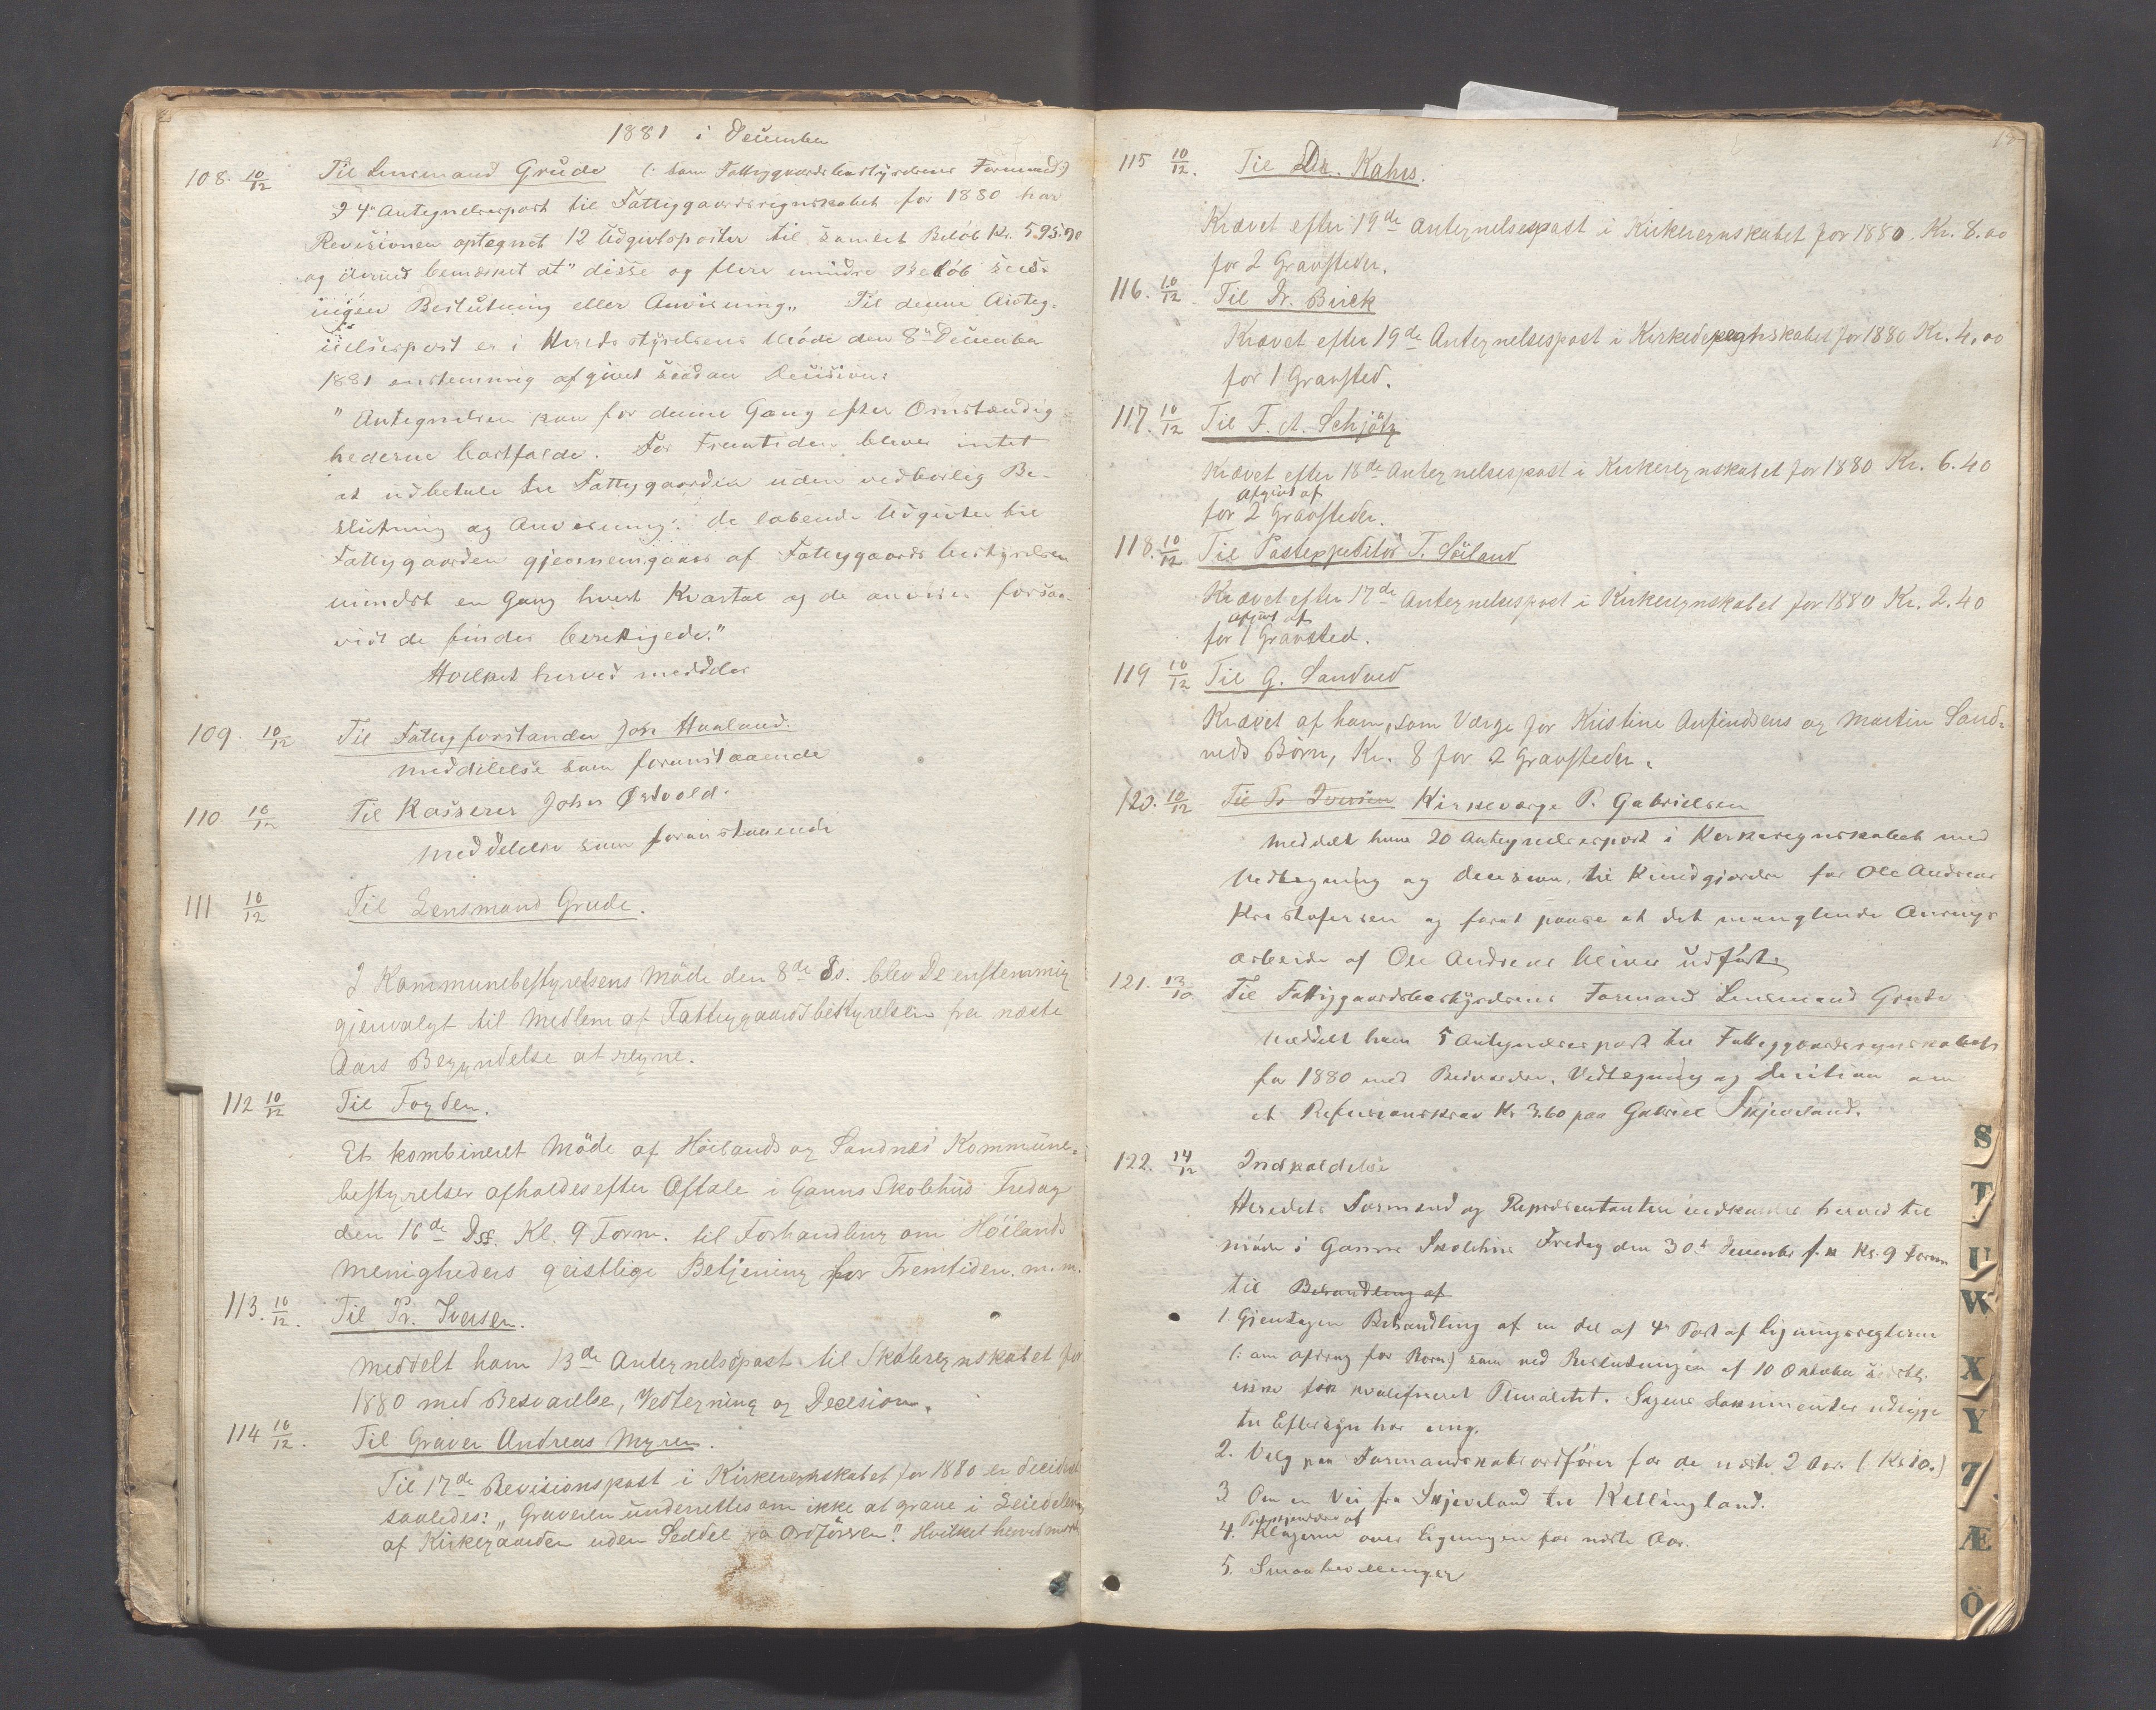 1881 i December
108. 10/12 Til Lensmand Grude (: som Fattiggaardsbestyrelsens Formand:)
I 4de Antegnelsespost til Fattiggaardsregnskabet for 1880 har
Revisionen optegnet 12 Udgivtsposter til samlet Beløb Kr. 595.70
og derved bemærket at "disse og flere mindre Beløb sees
ingen Beslutning eller Anvisning". Til denne Anteg-
nelsespost er i Herredsstyrelsens Møde den 8de December
1881 enstemmig afgivet saadan Decision:
"Antegnelsen kan for denne Gang efter Omstændig-
hederne bortfalde. For Fremtiden bliver intet
at udbetale til Fattiggaarden uden vedbørlig Be-
slutning og Anvisning: de løbende Udgivter til
Fattiggaarden gjennemgaaes af Fattiggaardsbestyrelsen
mindst en Gang hvert Kvartal og de anvises forsaa-
vidt de findes berettigede."
Hvilket herved meddeles
109. 10/12 Til Fattigforstander Johs Haaland.
Meddelelse som foranstaaende
110 10/12 Til Kasserer John Østvold.
Meddelelse som foranstaaende
111 10/12 Til Lensmand Grude.
I Kommunebestyrelsens Møde den 8de ds. blev De enstemmig
gjenvalgt til Medlem af Fattiggaardsbestyrelsen fra næste
Aars Begyndelse at regne.
112 10/12 Til Fogden.
Et kombineret Møde af Høilands og Sandnæs Kommune-
bestyrelser afholdes efter Aftale i Ganns Skolehus Fredag
den 16de Ds. Kl. 9 Form. til Forhandling om Høilands
Menigheders geistlige Betjening for Fremtiden. m.m.
113. 10/12. Til Pr. Iversen.
Meddelt ham 13de Antegnelsespost til Skoleregnskabet for
1880 med Besvarelse, Vedtegning og Decision.
114 10/12. Til Graver Andreas Myren.
Til 17de Revisionspost i Kirkeregnskabet for 1880 er decideret
saaledes: "Graveren underrettes om ikke at grave i Leiedelen
af Kirkegaarden uden Seddel fra Ordføreren". Hvilket herved
115 10/12. Til Dr. Kahrs.
Krævet efter 19de Antegnelsespost i Kirkeregnskabet for 1880. Kr. 8.00
for 2 Gravsteder.
116. 10/12. Til Dr. Birck
Krævet efter 19de Antegnelsespost i Kirkeregnskabet for 1880 Kr. 4,00
for 1 Gravsted.
117. 10/12 Til F. A. Schjøtz
Krævet efter 18de Antegnelsespost i Kirkeregnskabet for 1880 Kr. 6.40
Afgivt af
for 2 Gravsteder.
118. 10/12 Til Postexpeditør T. Søiland
Krævet efter 17de Antegnelsespost i Kirkeregnskabet for 1880 Kr. 2.40
Afgivt af
for 1 Gravsted.
119 10/12 Til G. Sandved
Krævet af ham, som Værge for Kristine Anfindsens og Martin Sand-
veds Børn, Kr. 8 for 2 Gravsteder.
120. 10/12 Til Pr Iversen Kirkeværge P. Gabrielsen
Meddelt ham 20 Antegnelsespost i Kirkeregnskabet med
Vedtegning og Decision, til Kundgjørelse for Ole Andreas
Kristofersen og forat paase at det manglende
arbeide af Ole Andreas bliver udført.
121. 13/12 Til Fattiggaardsbestyrelsens Formand Lensmand Grude
Meddelt ham 5 Antegnelsespost til Fattiggaardsregnskabet
for 1880 med Besvarelse, Vedtegning og Decision om
et Refusionskrav Kr 3.60 paa Gabriel Skjeveland.
122. 14/12 Indkaldelse
Herredets Formænd og Repræsentanter indkaldes herved til
møde i Ganns Skolehus Fredag den 30te December f. k Kl. 9 Form
til Behandling af
1. Gjentagen Behandling af en del af 4de Post af Ligningsreglerne
(: om afdrag for Børn:) som ved Beslutningen af 10 Oktober
ikke fik kvalificeret Pluralitet. Sagens Dokumenter udligge
til Eftersyn hos mig.
2. Valg paa Formandskabsordfører for de næste 2 Aar (: Kl 10.:)
3 Om en Vei fra Skjeveland til Kellingland.
4. Klagerne over Ligningen for næste Aar.
5. Smaabevillinger
S
T
U
W
X
Y
Z
Æ
Ö